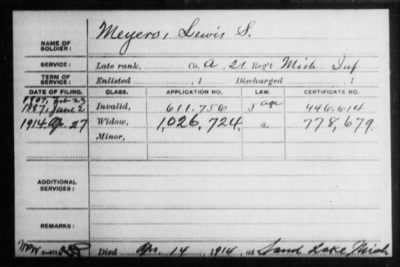 NAME OF SOLDIER: Meyers, Lewis S.
SERVICE: Late rank, Co. A, 21 Reg't Mich Inf
TERM OF SERVICE: Enlisted , 1 Discharged , 1
DATE OF FILING. CLASS. APPLICATION NO. LAW. CERTIFICATE NO.
1907, 23
1887, June 2 Invalid, 611.756 446.614
1914 Apr. 27 Widow, 1,026,724, 778,679.
Minor,
ADDITIONAL SERVICES:
REMARKS:
Died Apr. 14, 1914, at Sand Lake Mich